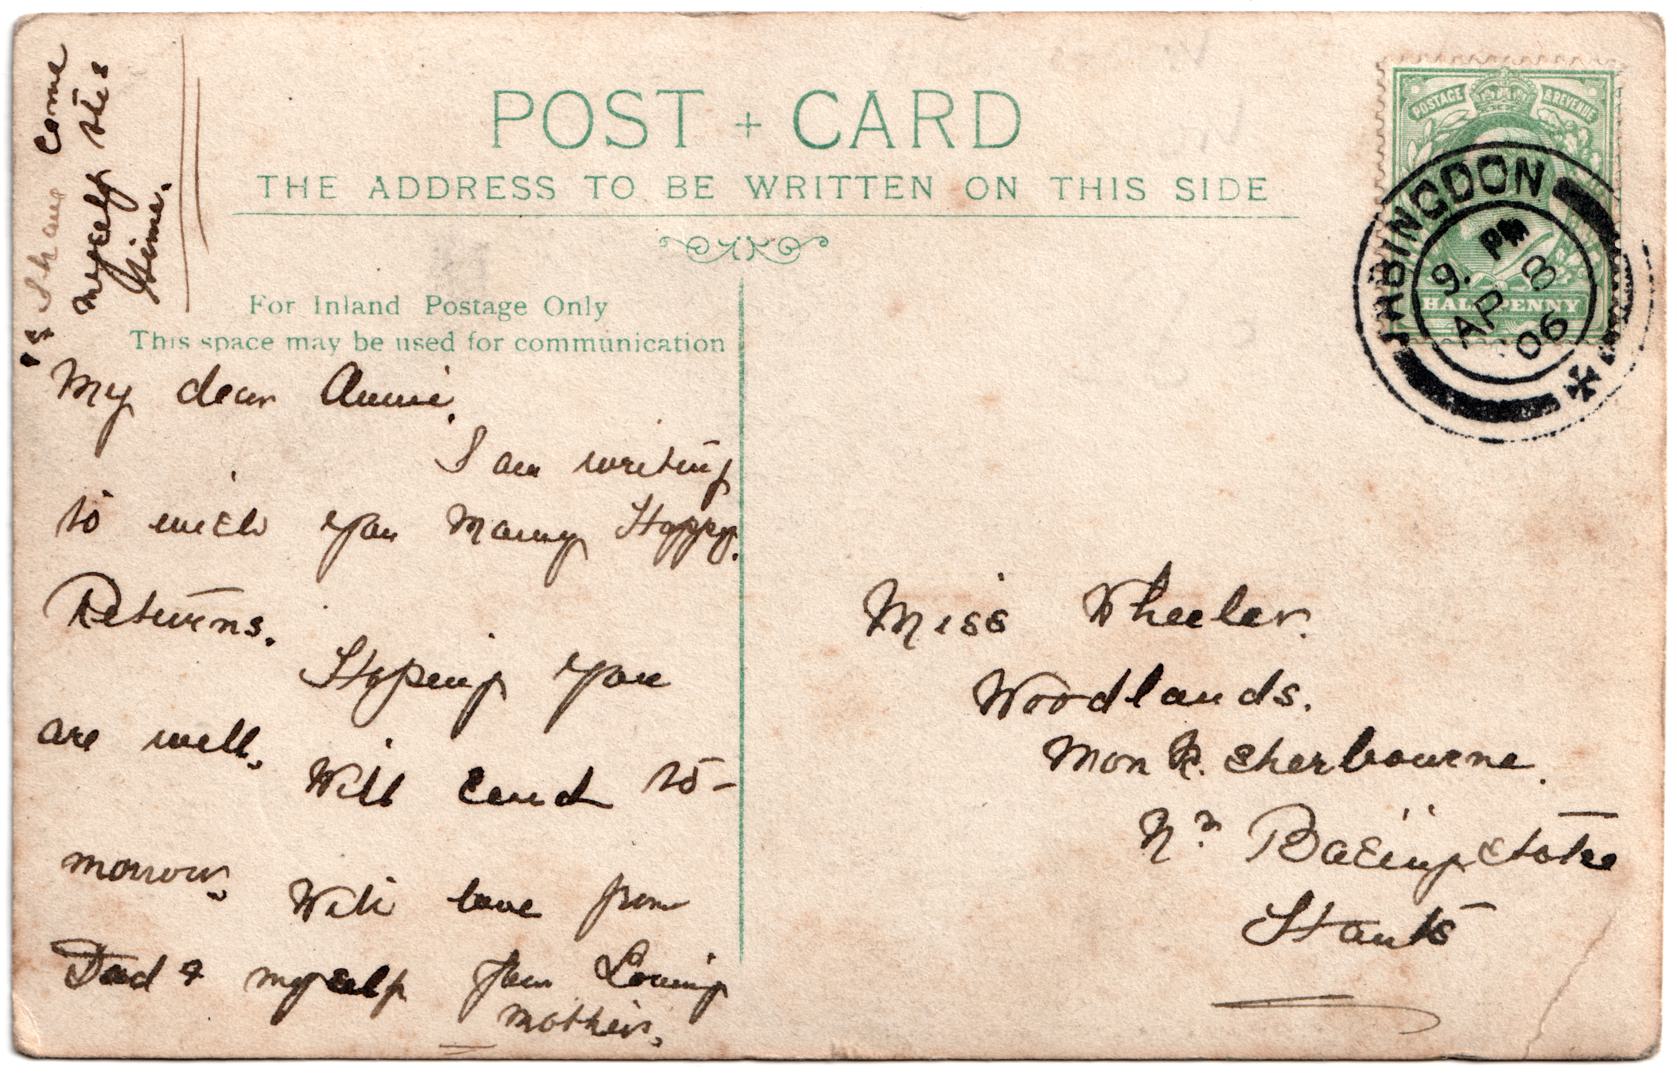 POST + CARD
THE ADDRESS TO BE WRITTEN ON THIS SIDE
For Inland Postage Only
This space may be used for communication
POSTAGE & REVENUE
HALFPENNY
ABINGDON
9. PM
AP 8
06
My dear Annie.
I am writing
to wish you Many Happy.
Returns.
Hoping you
are well.
Will send to-
morrow.
With love from
Dad & myself Your Loving
Mother.
Shall come
myself this
time.
Miss Wheeler.
Woodlands.
Monk. Sherbourne.
Nr Basingstoke
Hants